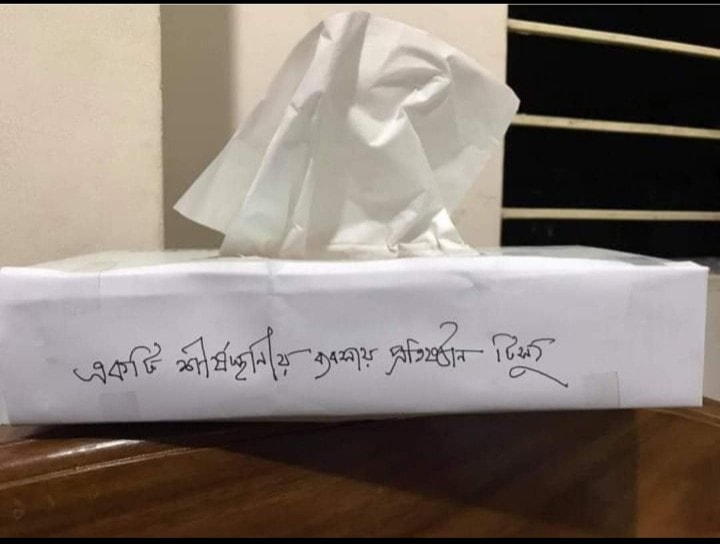 একটি শীর্ষস্থানীয় ব্যবসায় প্রতিষ্ঠান টিস্যু